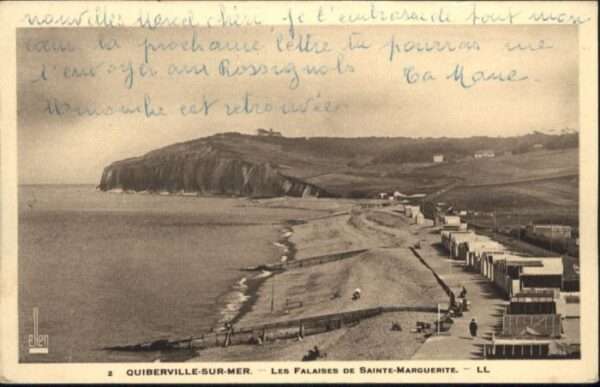 nouvelles Marcel chéri je t'embrasse de tout mon
cœur la prochaine lettre tu pourras me
l'envoyer aux Rossignols Ta Mane.
Ma manche est retrouvée
2 QUIBERVILLE-SUR-MER. — LES FALAISES DE SAINTE-MARGUERITE. - LL